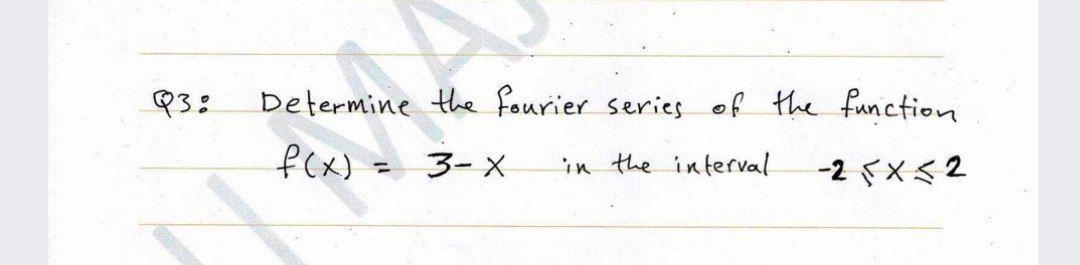 Q3: Determine the fourier series of the function
f(x) = 3-x in the interval -2 ≤ x ≤ 2